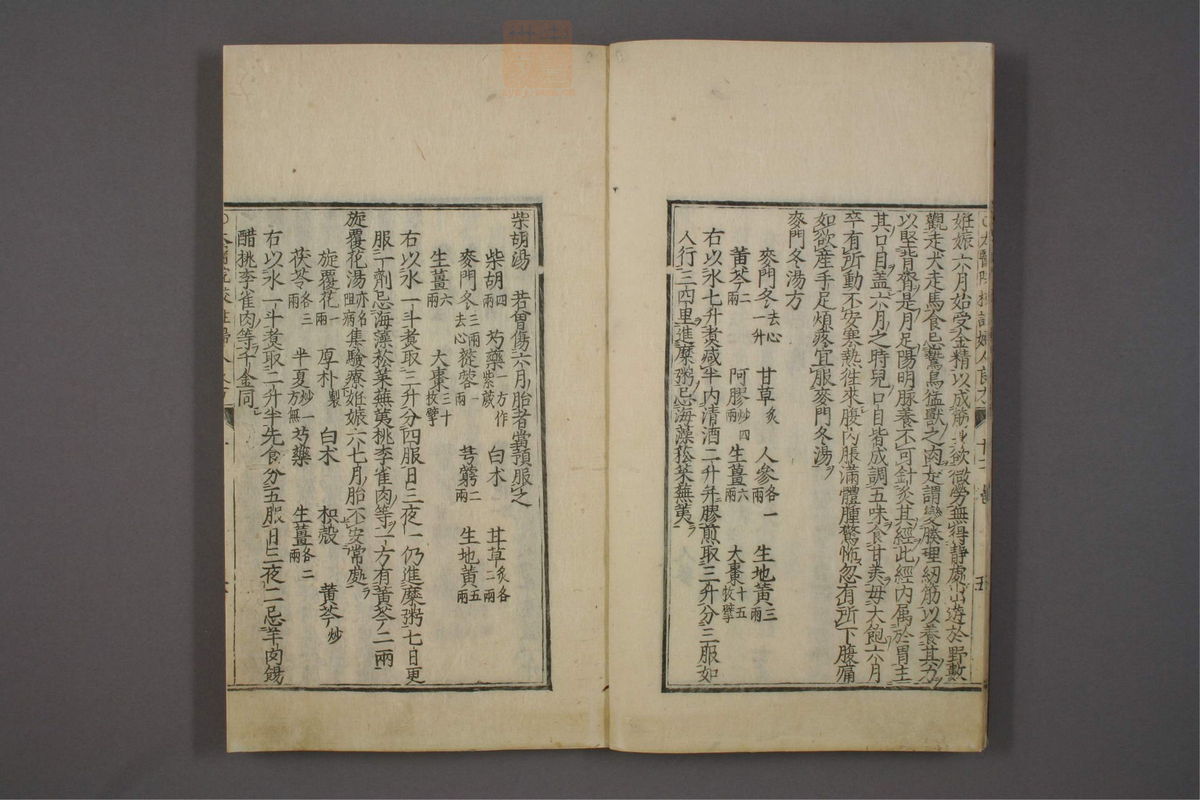 妊娠六月始受金精以成筋身欲微勞無得靜處出遊於野數
觀走犬走馬食忌鷙鳥猛獸之肉是謂變腠理紉筋以養其力
以堅背膂是月足陽明脉養不可針灸其經此經内属於胃主
其口目盖六月之時兒口目皆成調五味食甘美毋大飽六月
卒有所動不安寒熱徃來腹内脹滿體腫驚怖忽有所下腹痛
如欲産手足煩疼宜服麥門冬湯
麥門冬湯方
麥門冬去心一升 甘草炙 人參各一兩 生地黄三兩
黄芩二兩 阿膠炒四兩 生薑六兩 大棗十五枚擘
右以水七升煮减半内清酒二升并膠煎取三升分三服如
人行三四里進糜粥忌海藻菘菜蕪荑
柴胡湯 若曾傷六月胎者當預服之
柴胡四兩 芍藥一方作紫葳 白术 甘草炙各二兩
麥門冬三兩去心 蓯蓉一兩 芎藭二兩 生地黄五兩
生薑六兩 大棗三十枚擘
右以水一斗煮取三升分四服日三夜一仍進糜粥七日更
服一劑忌海藻菘菜蕪荑桃李雀肉等一方有黄芩二兩
旋覆花湯亦名阻病 集驗療妊娠六七月胎不安常處
旋覆花一兩 厚朴製 白术 枳殼 黄芩炒
茯苓各三兩 半夏炒一方無 芍藥 生薑各二兩
右以水一斗煮取二升半先食分五服日三夜二忌羊肉餳
醋桃李雀肉等千金同